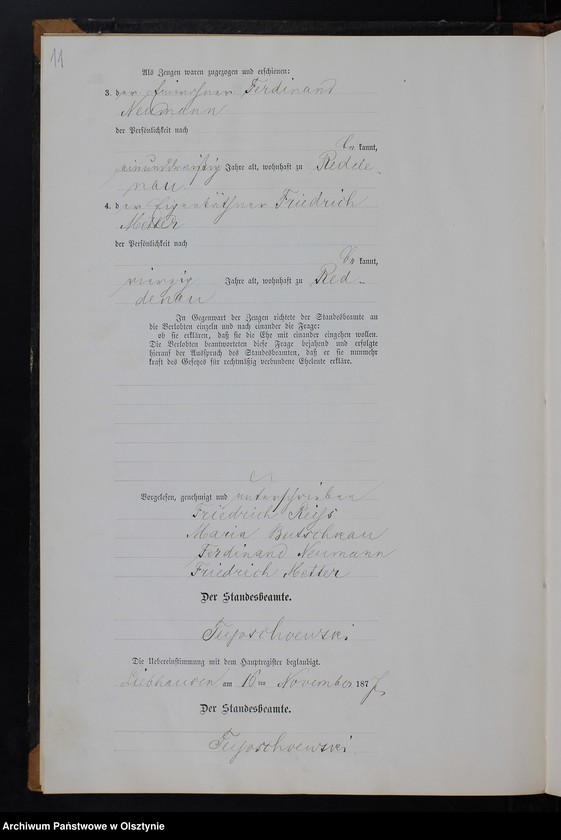 11
Als Zeugen waren zugezogen und erschienen:
3. der Ferdinand
Neumann
der Persönlichkeit nach
be kannt,
einunddreißig Jahre alt, wohnhaft zu Redde-
nau
4. der Eigenkäthner Friedrich
Metter
der Persönlichkeit nach
be kannt,
vierzig Jahre alt, wohnhaft zu Red-
denau
In Gegenwart der Zeugen richtete der Standesbeamte an
die Verlobten einzeln und nach einander die Frage:
ob sie erklären, daß sie die Ehe mit einander eingehen wollen.
Die Verlobten beantworteten diese Frage bejahend und erfolgte
hierauf der Ausspruch des Standesbeamten, daß er sie nunmehr
kraft des Gesetzes für rechtmäßig verbundene Eheleute erkläre.
Vorgelesen, genehmigt und unterschrieben
Friedrich
Maria Butschkau
Ferdinand Neumann
Friedrich Metter
Der Standesbeamte.
Die Uebereinstimmung mit dem Hauptregister beglaubigt.
Liebhausen am 16 ten November 187
Der Standesbeamte.
Archiwum Państwowe w Olsztynie